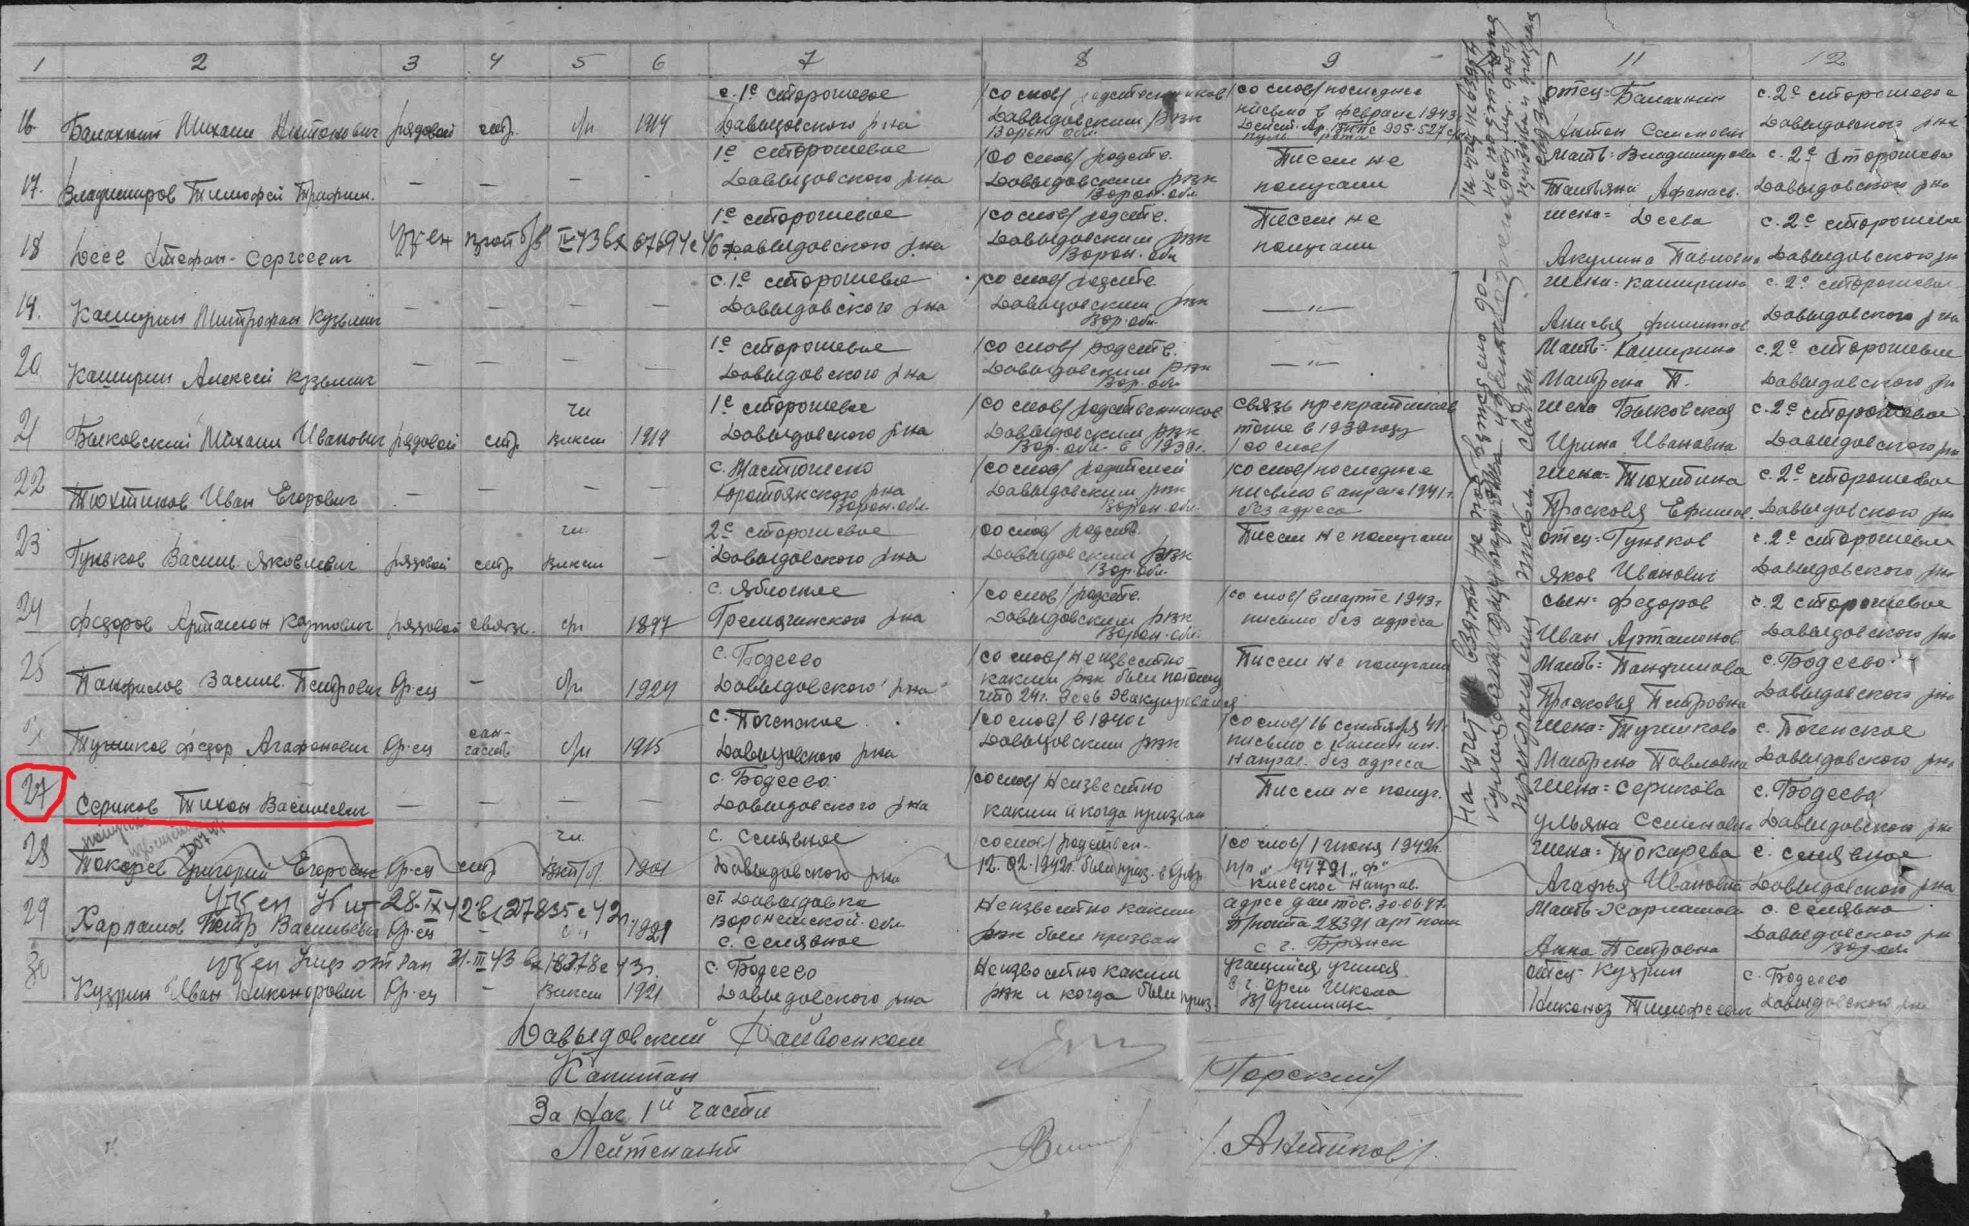 1 2 3 4 5 6 7 8 9 11 12
16 Балахнин Михаил Антонович рядовой стр. б/п 1914 с. 1е сторожевое Давыдовского р-на /со слов/ родственников Давыдовским рвк Ворон. обл. /со слов/ последнее письмо в феврале 1943 отец-Балахнин Антон Семенович с. 2е сторожевое Давыдовского р-на
17. Владимиров Тимофей Трофим. — — — — 1е сторожевое Давыдовского р-на /со слов/ родств. Давыдовским рвк Ворон. обл. Писем не получали Мать-Владимирова Татьяна Афанас. с. 2е сторожевое Давыдовского р-на
18 Деев Стефан Сергеевич 1е сторожевое Давыдовского р-на /со слов/ родств. Давыдовским рвк Ворон. обл. Писем не получали жена= Деева Акулина Павловна с. 2е сторожевое Давыдовского р-на
19. Каширин Митрофан Кузьмич — — — — с. 1е сторожевое Давыдовского р-на /со слов/ родств. Давыдовским рвк Вор. обл. —"— жена= Каширина Анисья с. 2е сторожевое Давыдовского р-на
20 Каширин Алексей Кузьмич — — — — 1е сторожевое Давыдовского р-на /со слов/ родств. Давыдовским рвк Вор. обл. —"— Мать= Каширина Матрена П. с. 2е сторожевое Давыдовского р-на
21 Быковский Михаил Иванович рядовой стр. чл. влксм 1919 1е сторожевое Давыдовского р-на /со слов/ родственников Давыдовским рвк Вор. обл. в 1939г. связь прекратилась тоже в 1939 году /со слов/ жена Быковская Ирина Ивановна с. 2е сторожевое Давыдовского р-на
22 Тюхтиков Иван Егорович — — — — с. Мастюгино Коротоякского р-на Ворон. обл. /со слов/ родителей Давыдовским рвк Ворон. обл. /со слов/ последнее письмо в апреле 1941г. без адреса жена= Тюхтина Прасковя Ефимов. с. 2е сторожевое Давыдовского р-на
23 Гуньков Васил. Яковлевич рядовой стр. чл. влксм — 2е сторожевое Давыдовского р-на /со слов/ родств. Давыдовским рвк Вор. обл. Писем не получали отец-Гуньков Яков Иванович с. 2е сторожевое Давыдовского р-на
24 Федоров Артамон Карпович рядовой связь. б/п 1897 с. Яблочное Гремяченского р-на /со слов/ родств. Давыдовским рвк Ворон. обл. /со слов/ в марте 1943г письмо без адреса сын= Федоров Иван Артамонов. с. 2 сторожевое Давыдовского р-на
25 Панфилов Васил. Петрович кр-ец — б/п 1924 с. Бодеево Давыдовского р-на /со слов/ неизвестно каким рвк был потому что 24г. весь эвакуировался Писем не получали Мать= Панфилова Прасковья Петровна с. Бодеево Давыдовского р-на
Тучиков Федор Агафонович кр-ец сан-часть б/п 1915 с. Почепское Давыдовского р-на /со слов/ в 1940г Давыдовским рвк /со слов/ 16 сентября 41г. письмо с Калинин. направ. без адреса жена= Тучикова Матрена Павловна с. Почепское Давыдовского р-на
27 Сериков Тихон Васильевич — — — — с. Бодеево Давыдовского р-на /со слов/ Неизвестно каким и когда призван Писем не получ. жена= Серикова Ульяна Семеновна с. Бодеево Давыдовского р-на
28 Токарев Григорий Егорович кр-ец стр чл. вкп/б/ 1901 с. Селявное Давыдовского р-на /со слов/ родствен. 12.02.1942г. был приз. /со слов/ 1 июня 1942г. п/п 44791 "ф" Киевское направ. жена= Токарева Агафья Ивановна с. Селявное Давыдовского р-на
29 Харламов Петр Васильевич кр-ец 1921 ст. Давыдовка Воронежской обл. с. Селявное Неизвестно каким рвк был призван с г. Брянск Мать-Харламова Анна Петровна с. Селявно Давыдовского р-н Вор. обл
30 Кузрин Иван Никонорович кр-ец — влксм 1921 с. Бодеево Давыдовского р-на Неизвестно каким рвк и когда был приз. учащийся учился в г. Орел школа училище отец-Кузрин Никонор Тимофеевич с. Бодеево Давыдовского р-на
Давыдовский Райвоенком
Капитан /Горский/
За Нач 1й части
Лейтенант /Антипов/.